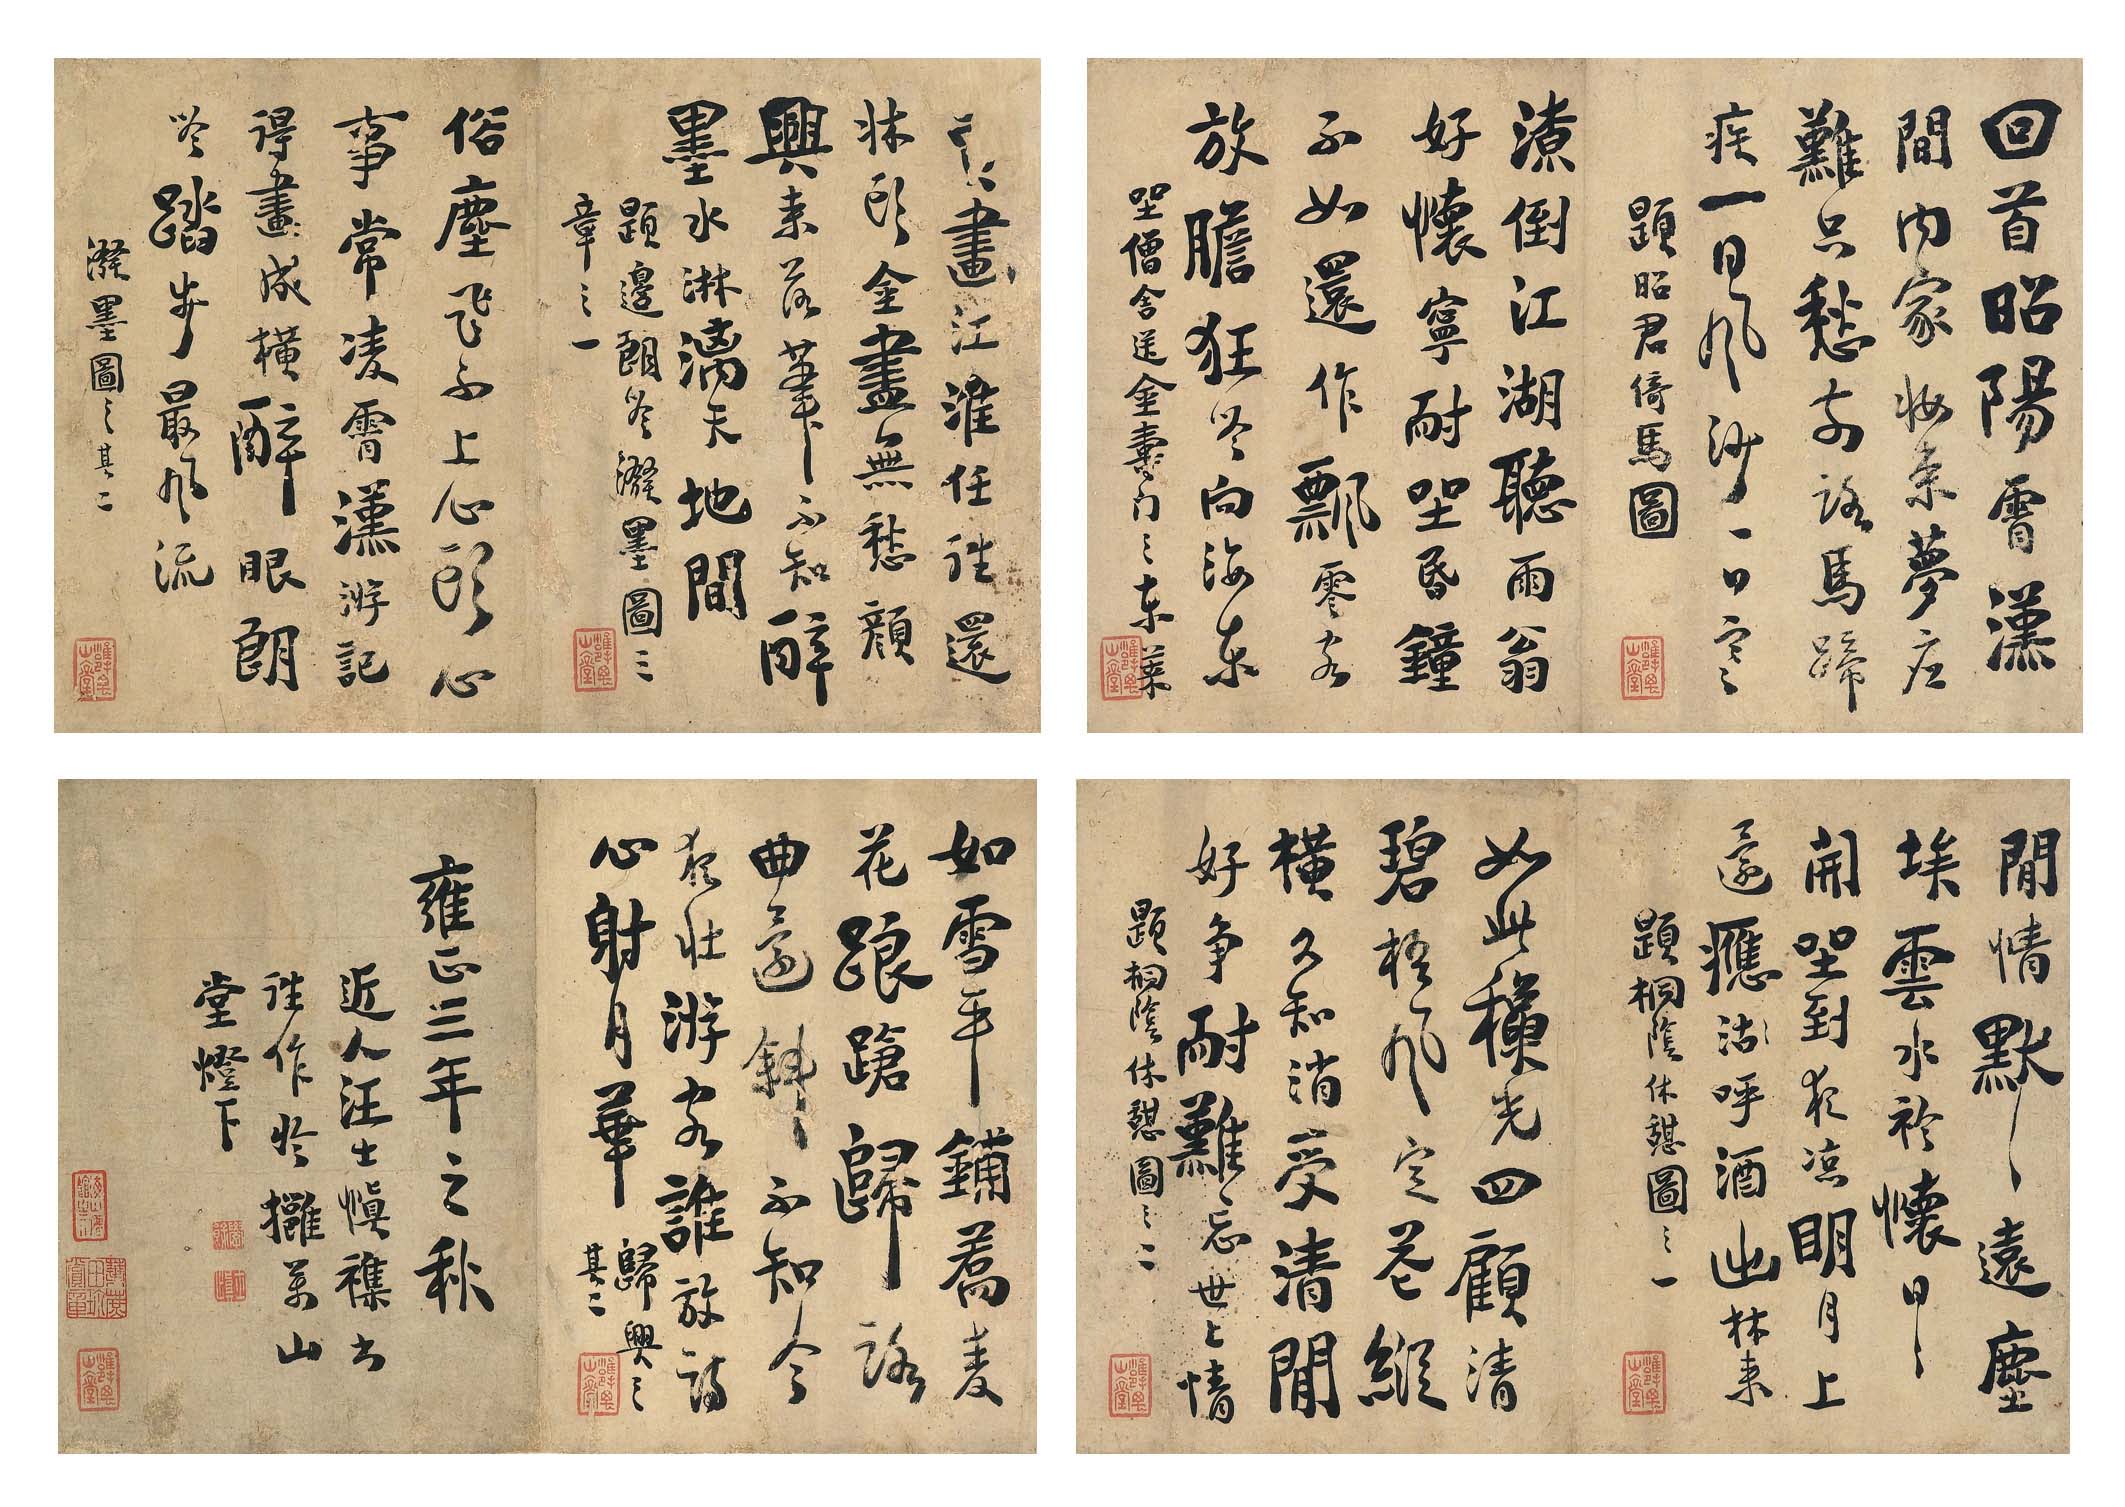 回首昭陽霄漢
間內家妝束夢應
難只愁前路馬蹄
疾一日風沙一日寒
題昭君倚馬圖
潦倒江湖聽雨翁
好懷寧耐坐昏鐘
不如還作飄零客
放膽狂吟向海東
坐僧舍送金橐門之東萊
畫江淮任往還
牀頭金盡無愁顏
興來落筆不知醉
墨水淋漓天地間
題邊朗吟潑墨圖三
章之一
俗塵飛不上心頭心
事常凌霄漢游記
得畫成橫醉眼朗
吟踏步最風流
潑墨圖之其二
閒情默默遠塵
埃雲水襟懷日日
開坐到夜涼明月上
還應沽呼酒出林來
題桐陰休憩圖之一
如此穠光四顧清
碧梧風定縱
橫久知消受清閒
好爭耐難忘世上情
題桐陰休憩圖之二
如雪平鋪蕎麥
花踉蹌歸路
曲還斜不知今
夜壯游客誰放詩
心射月華
歸興之
其二
雍正三年之秋
近人汪士慎襍書
往作於萬山
堂燈下